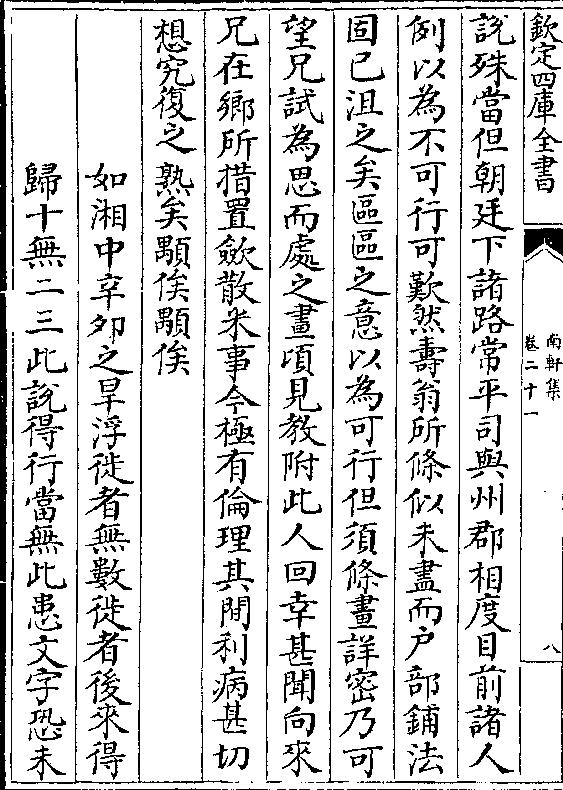 欽定四庫全書
南軒集
卷二十一
八
說殊當但朝廷下諸路常平司與州郡相度目前諸人
例以為不可行可歎然壽翁所條似未盡而户部鋪法
固已沮之矣區區之意以為可行但須條畫詳密乃可
望兄試為思而處之畫頃見教附此人回幸甚聞向來
兄在鄉所措置歛散米事今極有倫理其閒利病甚切
想究復之熟矣顒俟顒俟
如湘中辛夘之旱浮徙者無數徙者後來得
歸十無二三此說得行當無此患文字恐未